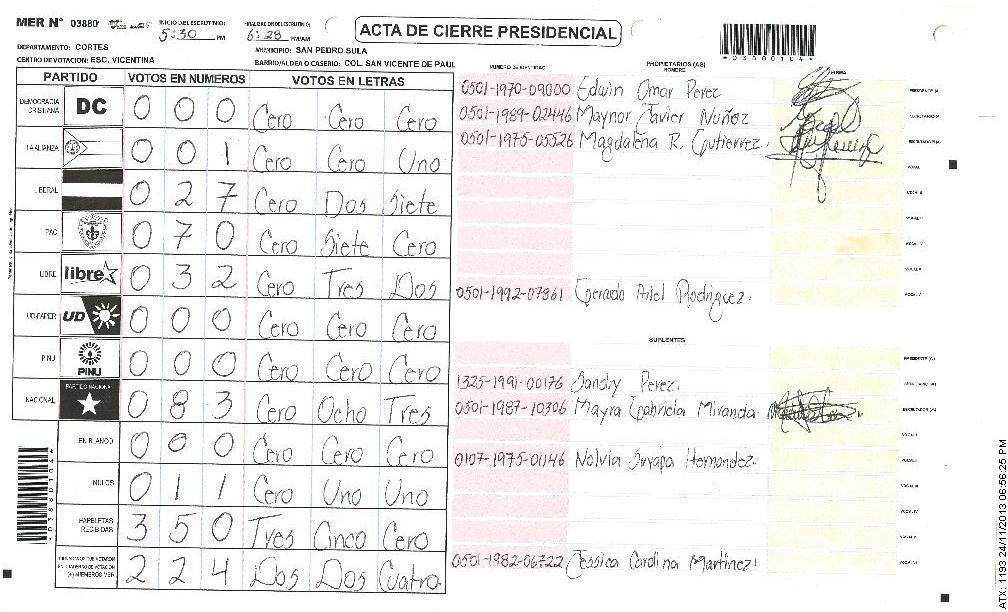 MER N° 03880 INICIO DEL ESCRUTINIO: 5:30 PM FINALIZACION DEL ESCRUTINIO: 6:28 PM/AM
ACTA DE CIERRE PRESIDENCIAL
*03880104*
DEPARTAMENTO: CORTES MUNICIPIO: SAN PEDRO SULA
CENTRO DE VOTACION: ESC. VICENTINA BARRIO/ALDEA O CASERIO: COL. SAN VICENTE DE PAUL
PARTIDO VOTOS EN NUMEROS VOTOS EN LETRAS
DEMOCRACIA CRISTIANA DC 0 0 0 Cero Cero Cero
LA ALIANZA 0 0 1 Cero Cero Uno
LIBERAL 0 2 7 Cero Dos Siete
PAC 0 7 0 Cero Siete Cero
LIBRE libre 0 3 2 Cero Tres Dos
UD-FAPER UD 0 0 0 Cero Cero Cero
PINU PINU 0 0 0 Cero Cero Cero
NACIONAL PARTIDO NACIONAL 0 8 3 Cero Ocho Tres
EN BLANCO 0 0 0 Cero Cero Cero
NULOS 0 1 1 Cero Uno Uno
PAPELETAS RECIBIDAS 3 5 0 Tres Cinco Cero
2 2 4 Dos Dos Cuatro
NUMERO DE IDENTIDAD PROPIETARIOS (AS) NOMBRE FIRMA
0501-1970-09000 Edwin Omar Perez PRESIDENTE (A)
0501-1989-02446 Maynor Javier Nuñez SECRETARIO (A)
0501-1975-05526 Magdalena R. Gutierrez. ESCRUTADOR (A)
0501-1992-07861 Gerardo Ariel Rodriguez.
SUPLENTES
PRESIDENTE (A)
1325-1991-00176 Sandry Perez. SECRETARIO (A)
0501-1987-10306 Mayra Gabriela Miranda ESCRUTADOR (A)
0107-1975-01146 Nolvia Suyapa Hernandez.
0501-1982-06722 Jessica Carolina Martinez.
*03880104*
ATX: 1193 24/11/2013 06:56:25 PM